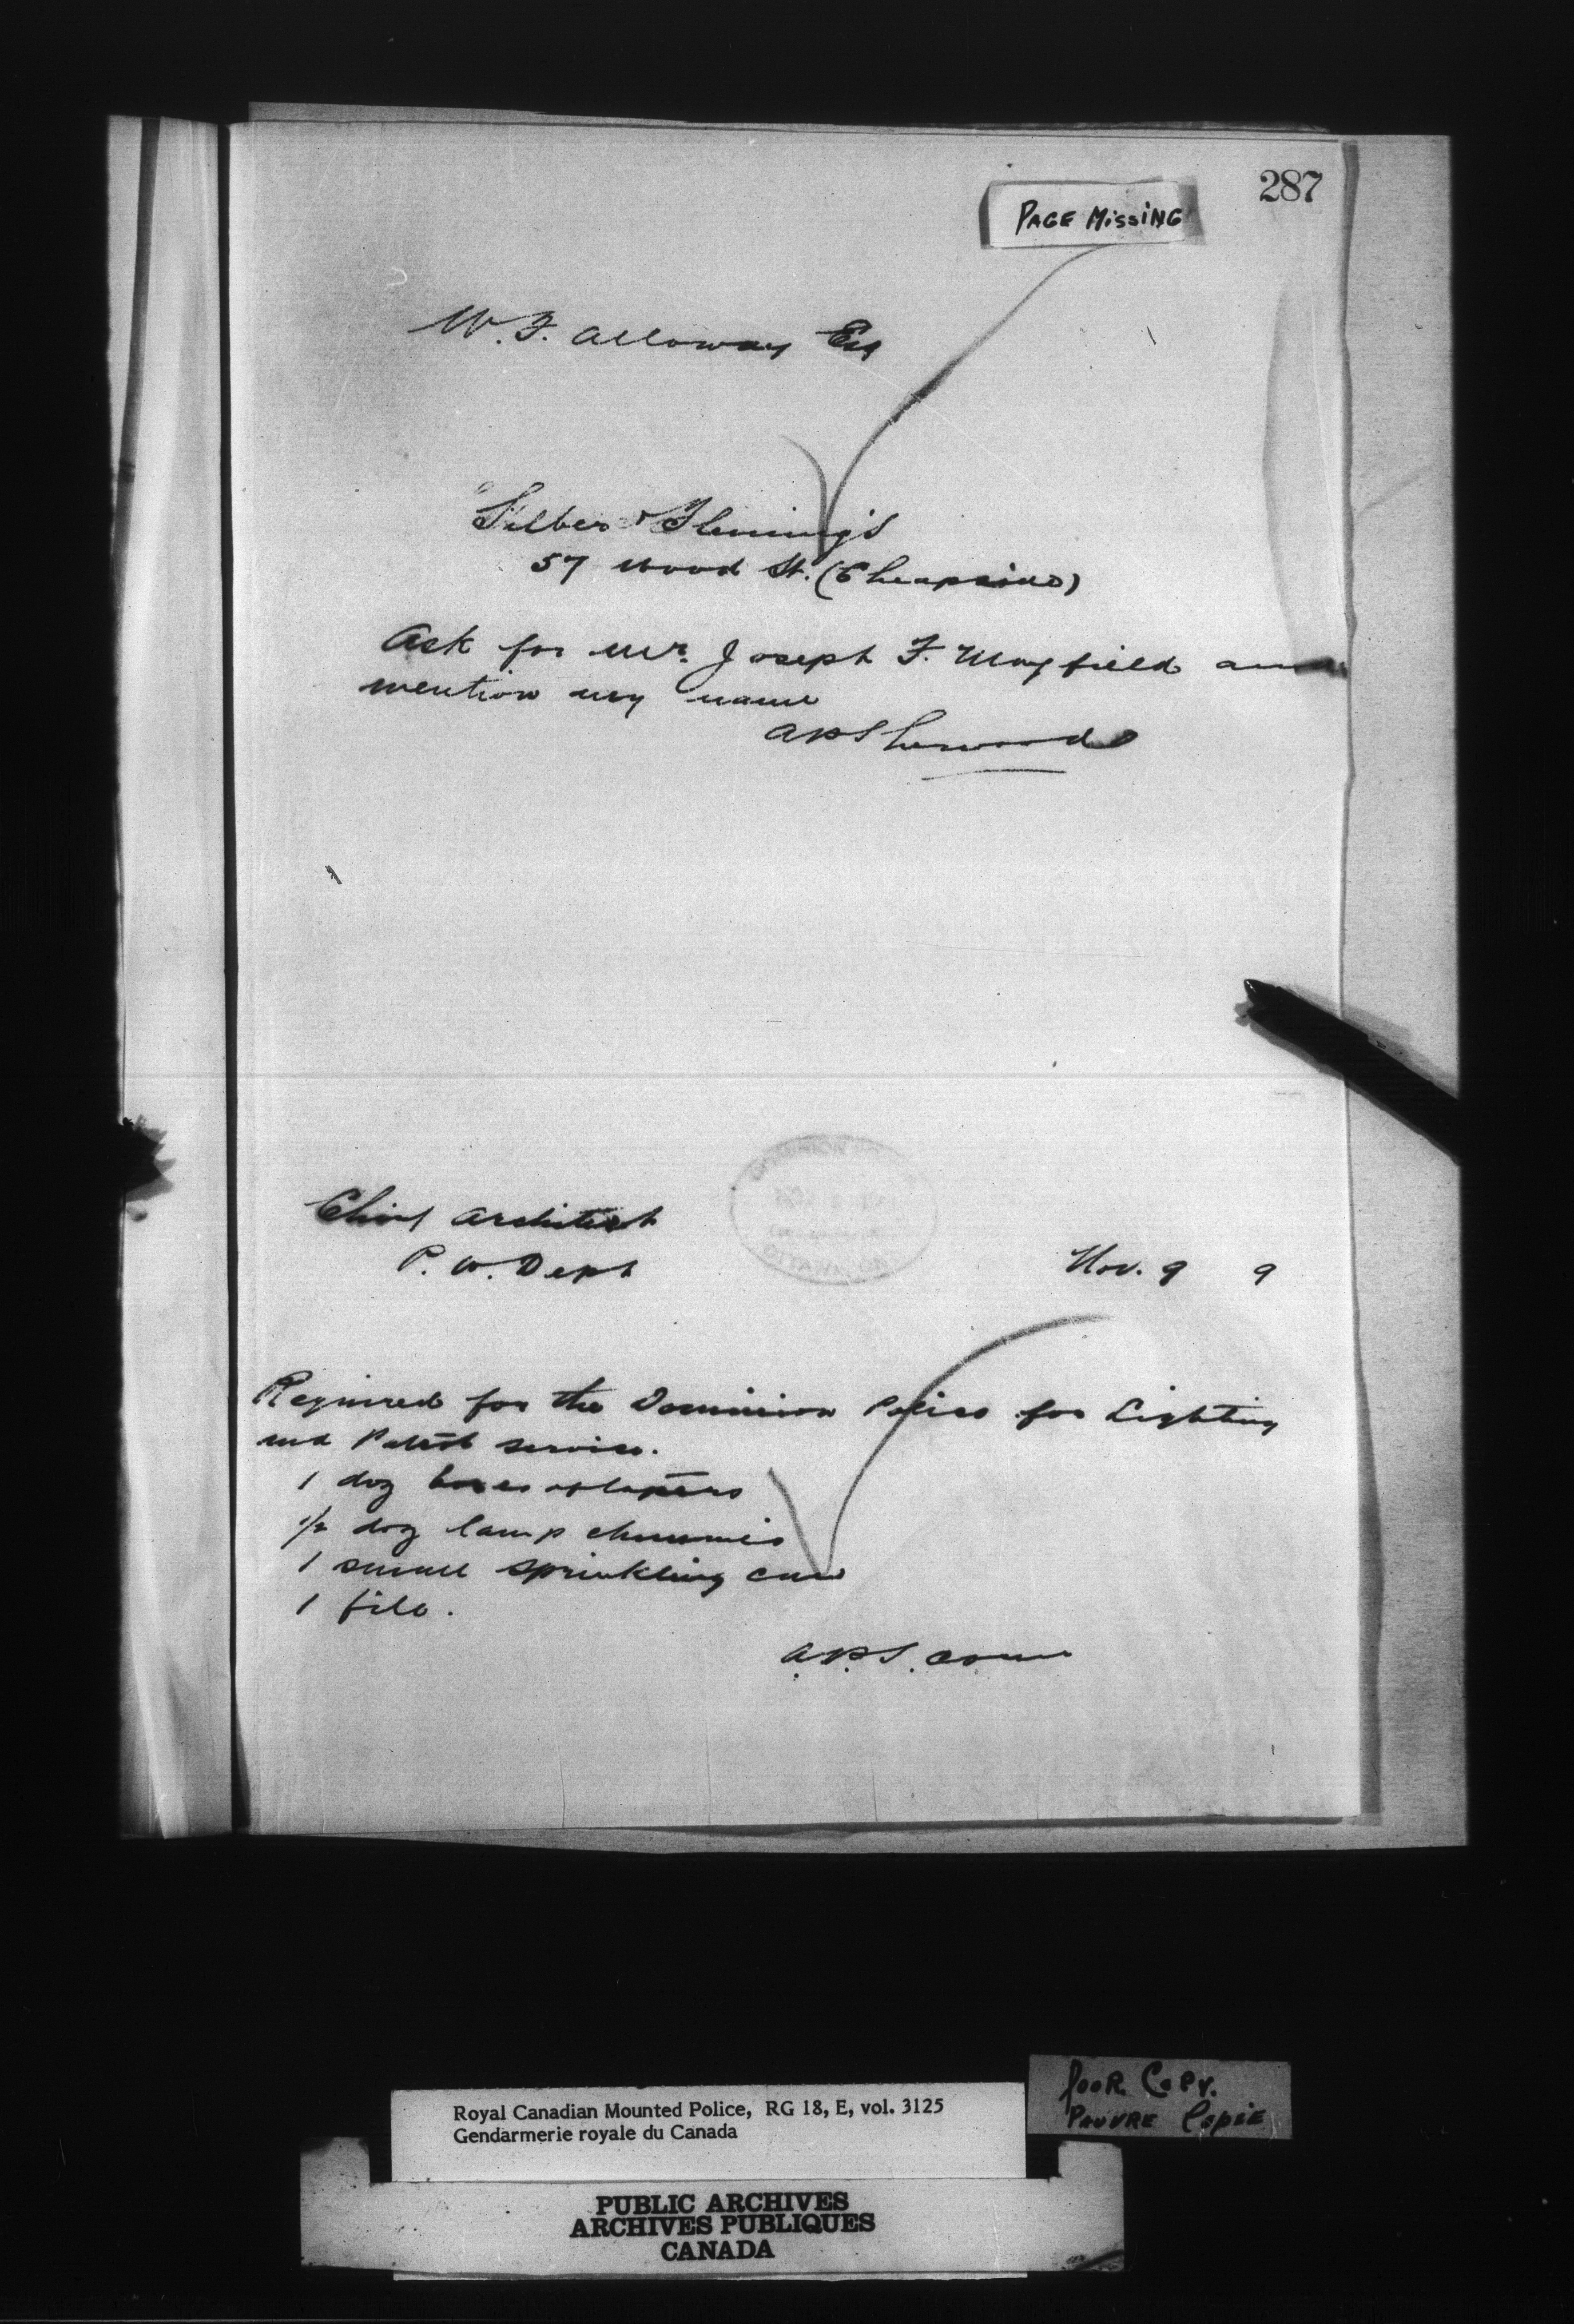 287
PAGE MISSING
W. F. Alloway Esq
Silber & Fleming's
57 Wood St. (Cheapside)
Ask for Mr. Joseph F. Mayfield and
mention my name
A P Sherwood
Chief Architect
P. W. Dept
Nov. 9 9
Required for the Dominion Police for Lighting
and Patrol service.
1 doz boxes of tapers
1/2 doz lamp chimnies
1 small sprinkling can
1 file.
A.P.S. Com
Poor Copy.
Pauvre Copie
Royal Canadian Mounted Police, RG 18, E, vol. 3125
Gendarmerie royale du Canada
PUBLIC ARCHIVES
ARCHIVES PUBLIQUES
CANADA